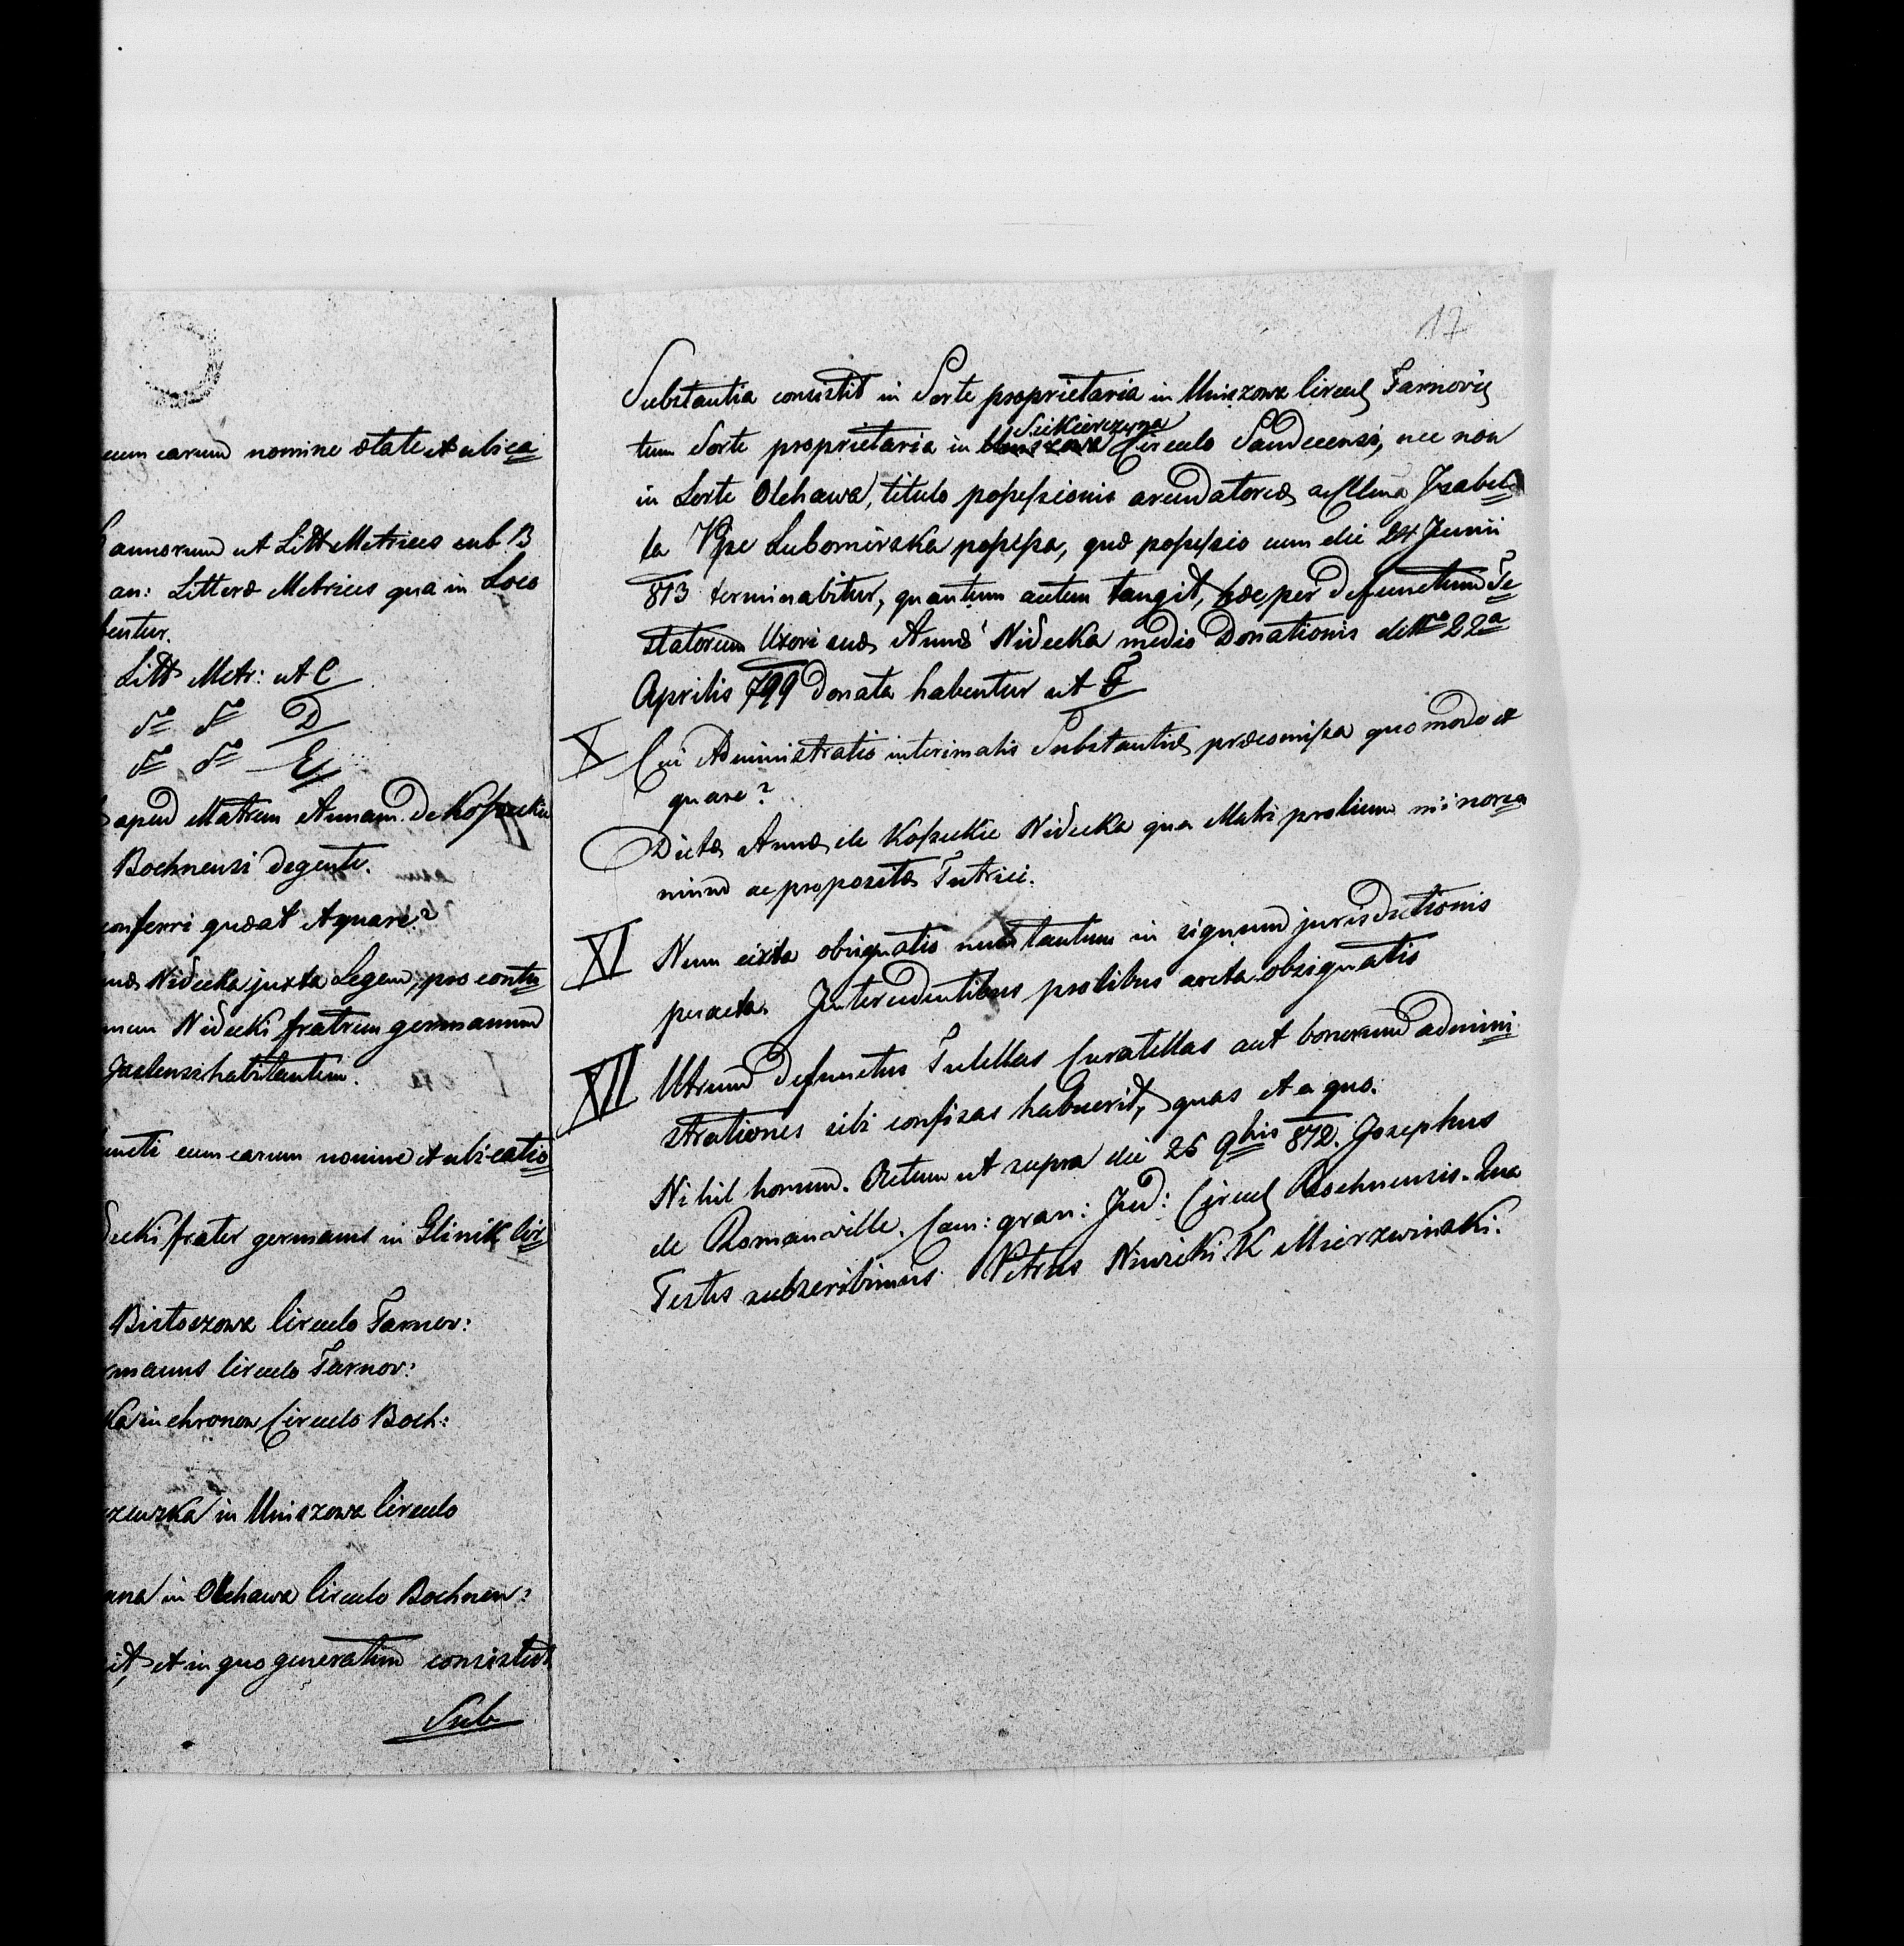 cum earum nomine ætate et ubica
annorum ut Litt Metrices sub B
an: Litteræ Metrices qua in Loco
bentur.
Litt Metr: ut C
dto dto D
dto dto E
apud Matrem Annam de Kossecki
Bochnensi degente.
conferri quæat et quare?
Nidecka juxta Legem, pro contu
Nidecki fratrem germanum
Jaslensi habitantem.
uncti cum earum nomine et ubicatio
decki frater germanus in Glinik Cir
Bistoszowa Circulo Tarnov:
rmanus Circulo Tarnov:
ka in chronow Circulo Boch:
zewska in Uniszowa Circulo
ana in Olchawa Circulo Bochnen:
it, et in quo generatim consistit
Sub
17
Substantia consistit in Sorte proprietaria in Uniszowa Circul Tarnovis
tum Sorte proprietaria in Siekierczyna Circulo Sandecensi, nec non
in Sorte Olchawa, titulo possessionis arendatoreæ a Isabel
la Pspe Lubomirska possessa, quæ possessio cum die 24 Junii
813 terminabitur, quantum autem tangit, hæc per defunctum Te
statorum Uxori suæ Annæ Nidecka medio Donationis detto 22a
Aprilis 799 donata habentur ut F
X Cui Administratio interimalis Substantiæ præcomissa quomodo et
quare?
Dictæ Annæ de Kosseckie Nidecka qua Matri prolium minorea
nium ac propositæ Tutrici.
XI Num eixta obsignatio tantum in signum jurisdictionis
peracta. Intercedentibus prolibus arcta obsignatis
XII Utrum defunctus Tutellas Curatellas aut bonorum admini
strationes sibi confisas habuerit, quas et a quo.
Nihil horum. Actum ut supra die 25 9bris 812. Josephus
de Romanville. Cam: gran: Jud: Circul Bochnensis. Qua
Testes subscribimus Petrus Niwicki K Mierzwinski.